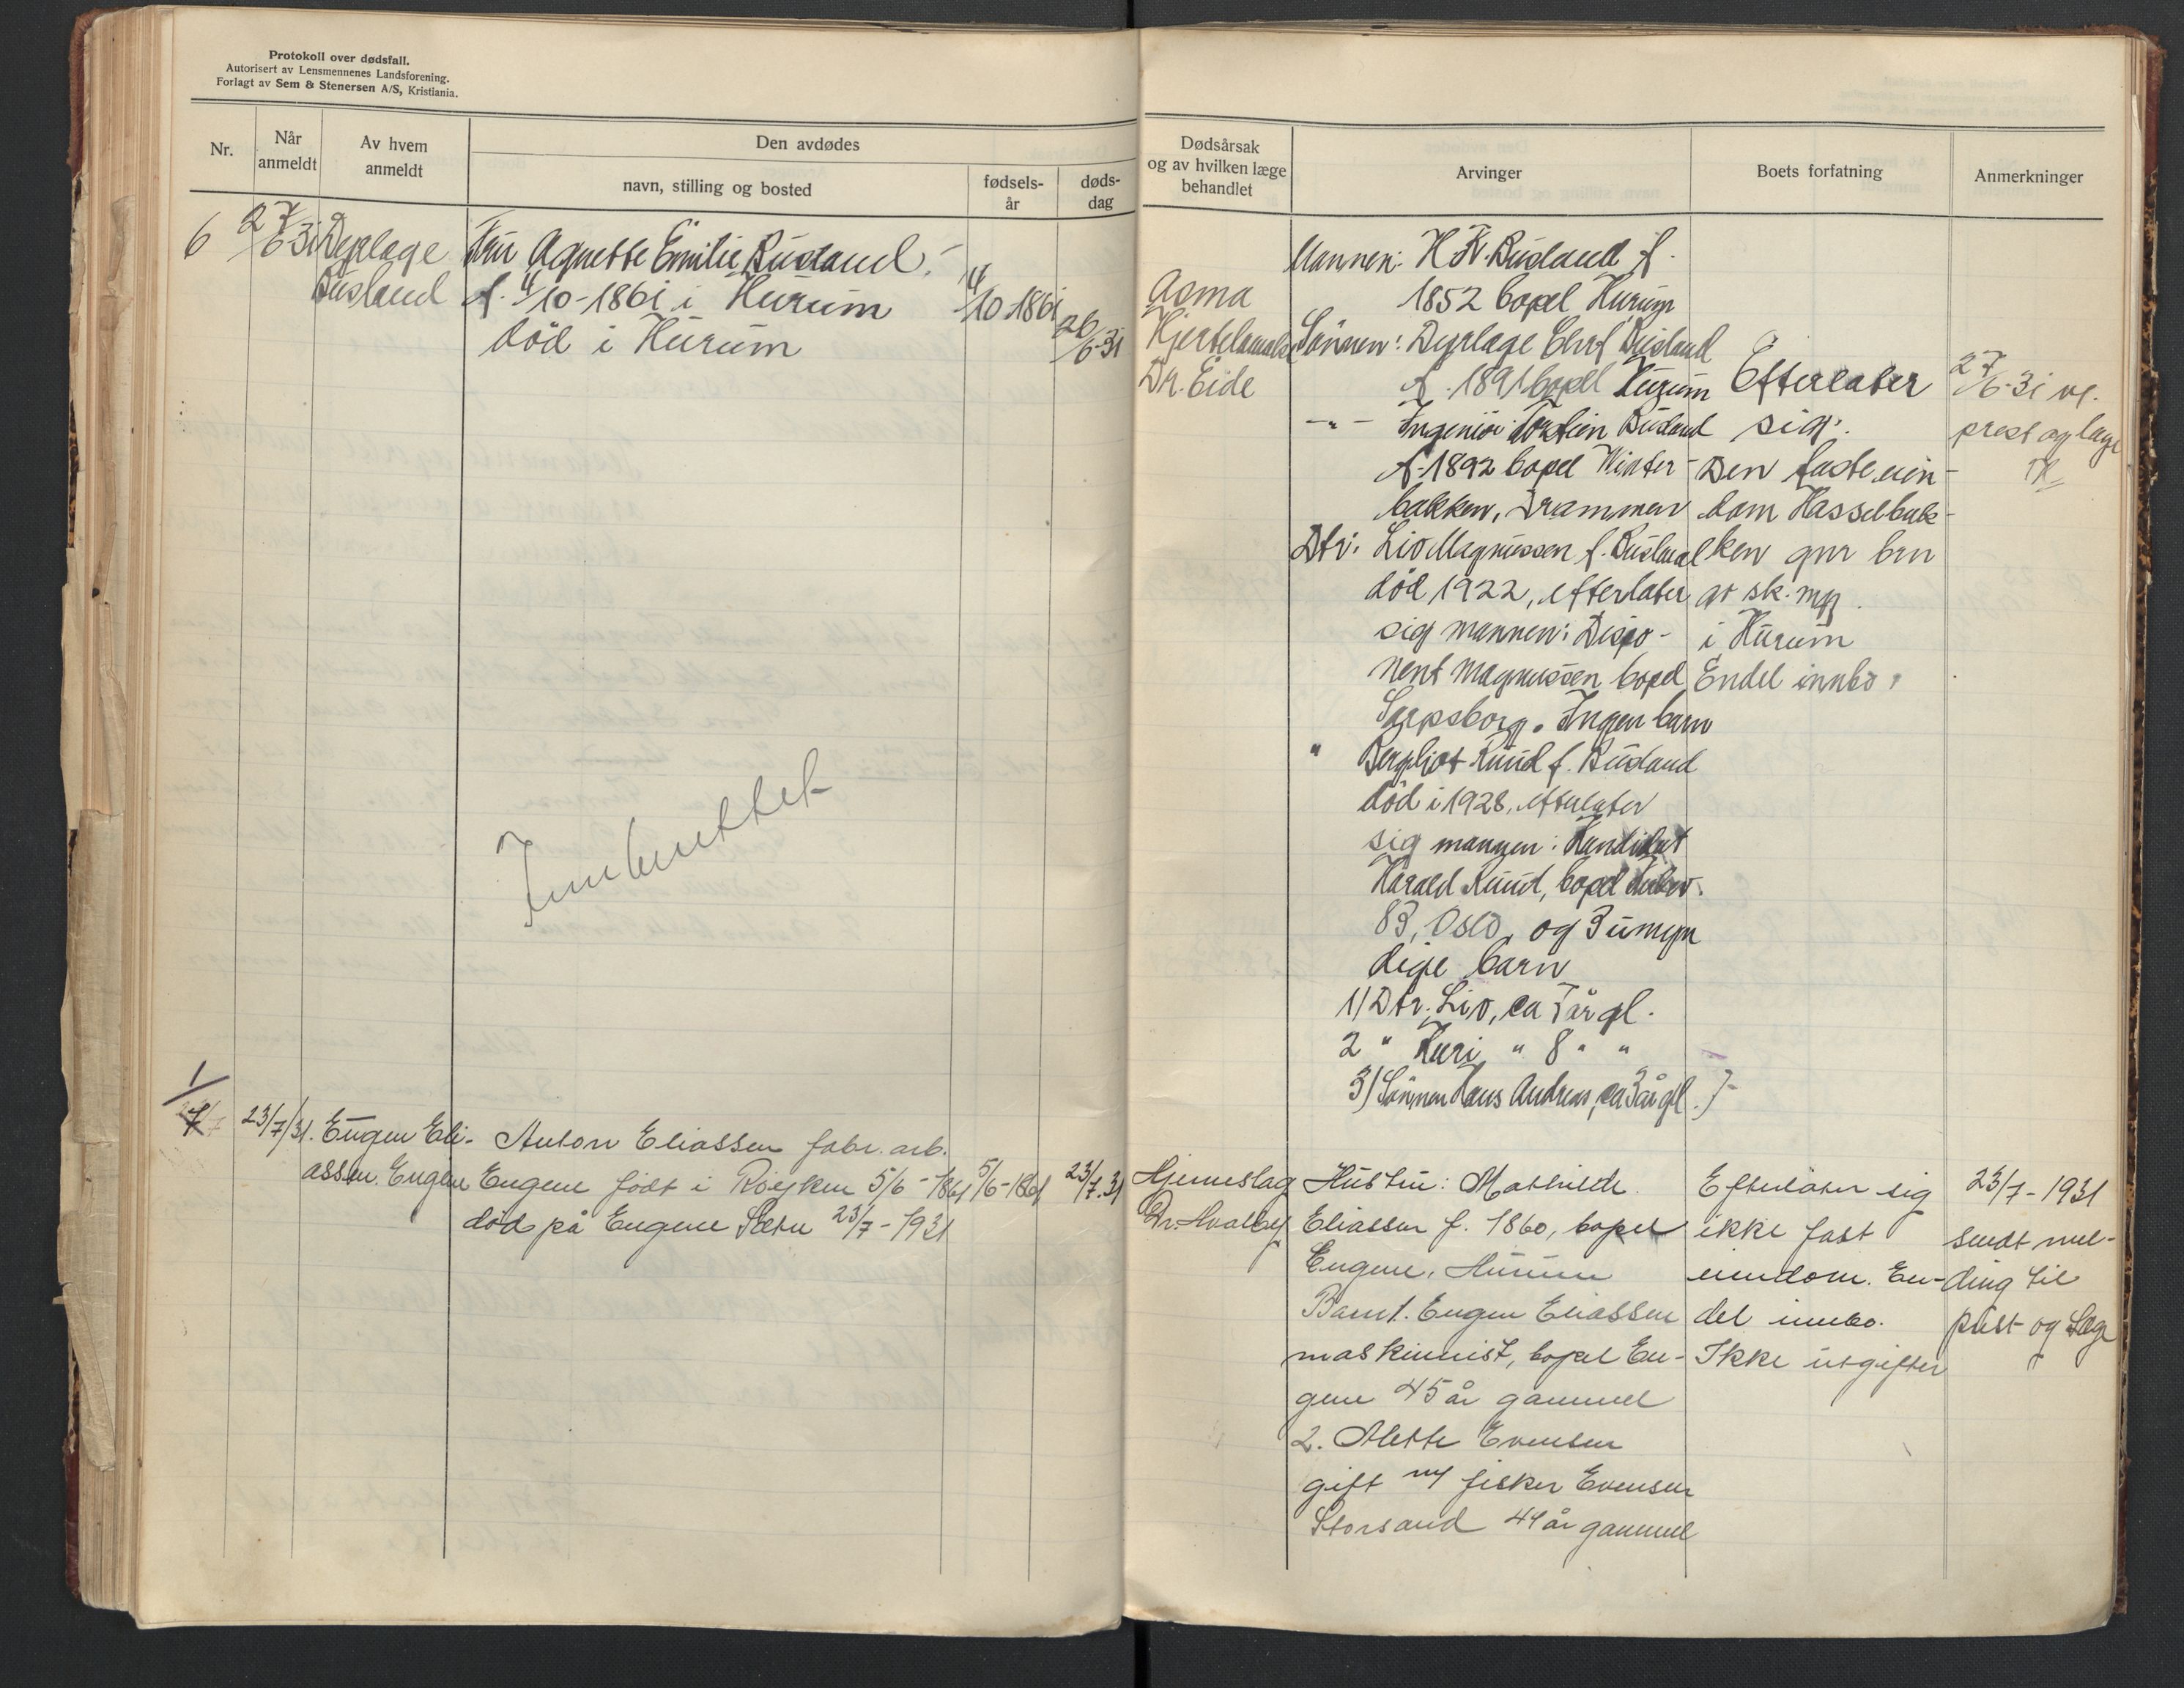 Protokoll over dødsfall.
Autorisert av Lensmennenes Landsforening.
Forlagt av Sem & Stenersen A/S, Kristiania.
Nr.
Når anmeldt
Av hvem anmeldt
Den avdødes
navn, stilling og bosted
fødsels-
år
døds-
dag
Dødsårsak
og av hvilken læge
behandlet
Arvinger
Boets forfatning
Anmerkninger
6
27/6 31
Dyrlæge
Busland
Fru Agnette Emilie Busland.
f. 4/10-1861 i Hurum
död i Hurum
4/10 1861
26/6-31
Asma
Hjertelammelse
Dr. Eide
Mannen: H K. Busland f.
1852 bopel Hurum
Sönnen: Dyrlæge Chr Busland
f. 1891 bopel Hurum
-"- Ingeniör Torstein Busland
f. 1892 bopel Winter-
bakken, Drammen
Dtr: Liv Magnussen f. Busland
död 1922, efterlater
sig mannen: Dispo-
nent Magnussen bopel
Sarpsborg. Ingen barn
" Bergliot Ruud f. Busland
död i 1928, efterlater
sig mannen: Kandidat
Harald Ruud, bopel
83, Oslo, og 3 umyn
dige barn
1) Dtr. Liv, ca 7 år gl.
2 " Kari, " 8 " "
3) Sönnen Hans Andreas, ca 3 år gl.
Efterlater
sig:
Den faste ein-
dom Hasselbak-
ken gnr bnr
av sk. mrk
i Hurum
Endel innbo.
27/6-31 ul.
prest og læge
Innberettet
1/7
23/7/31. Eugen Eli-
assen. Engene
Anton Eliassen fabr. arb.
Engene födt i Röyken 5/6-1861
död på Engene Sætre 23/7-1931
5/6-1861
23/7.31
Hjerneslag
Dr. Hvalby
Hustru: Mathilde
Eliassen f. 1860, bopel
Engene, Hurum
Barn 1. Eugen Eliassen
maskinist, bopel En-
gene 45 år gammel
2. Alette Evensen
gift m/ fisker Evensen
Storsand 44 år gammel
Efterlater sig
ikke fast
eiendom. En-
del innbo.
Ikke utgifter
23/7-1931
sendt mel-
ding til
prest og læge